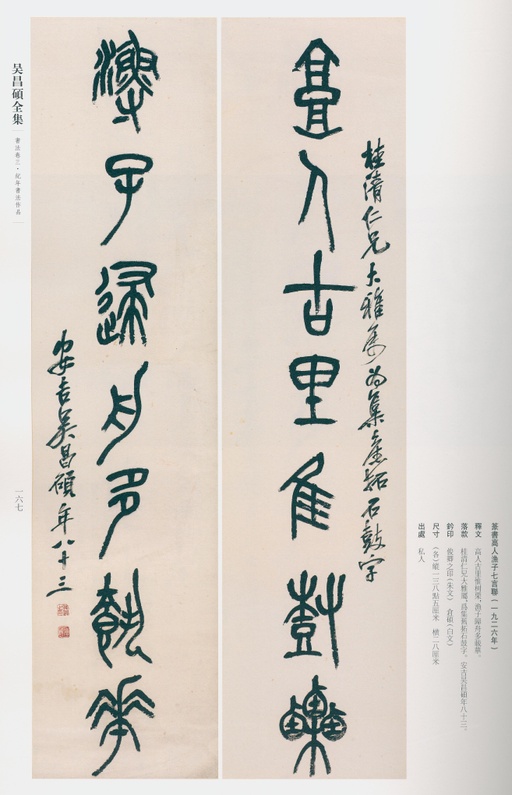 高人古里隹樹
桂清仁兄大雅屬為集舊拓石鼓字
漁子歸舟多執華
安吉吳昌碩年八十三
篆書高人漁子七言聯(一九二六年)
釋文 高人古里
漁子歸舟多
落款 桂清仁兄大雅屬,爲集舊拓石鼓字。安吉吳昌碩年八十三。
鈐印 俊卿之印(朱文) 倉碩(白文)
尺寸 (各)縱一三八點五厘米 橫二八厘米
出處 私人
吴昌碩全集
書法卷三·紀年書法作品
一六七